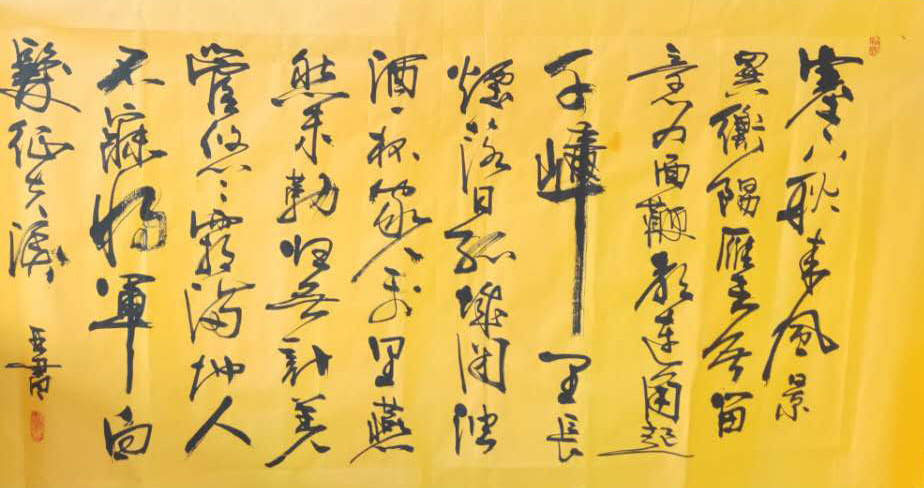 塞下秋来風景
異衡陽雁去无留
意四面邊聲連角起
千嶂里長
煙落日孤城閉濁
酒一杯家万里燕
然未勒归无計羌
管悠悠霜满地人
不寐将軍白
髮征夫淚